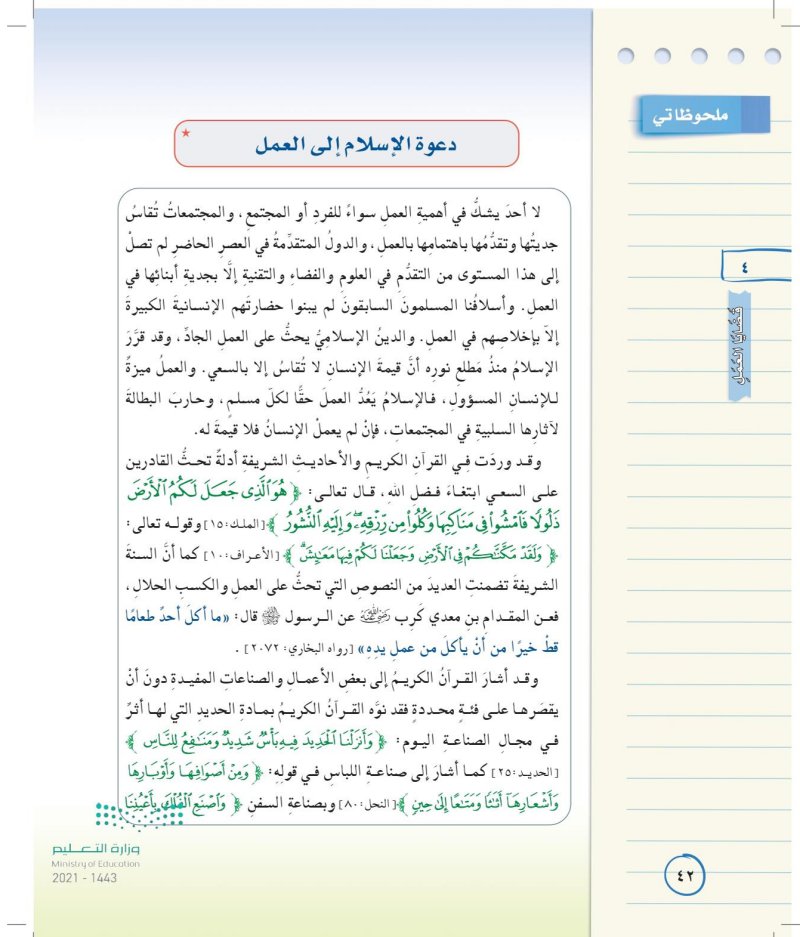 ملحوظاتي
٤
قضايا العمل
دعوة الإسلام إلى العمل *
لا أحدَ يشكُّ في أهميةِ العملِ سواءً للفردِ أو المجتمعِ، والمجتمعاتُ تُقاسُ
جديتُها وتقدُّمُها باهتمامِها بالعملِ، والدولُ المتقدِّمةُ في العصرِ الحاضرِ لم تصلْ
إلى هذا المستوى من التقدُّمِ في العلومِ والفضاءِ والتقنيةِ إلَّا بجديةِ أبنائِها في
العملِ. وأسلافُنا المسلمونَ السابقونَ لم يبنوا حضارتَهم الإنسانيةَ الكبيرةَ
إلاَّ بإخلاصِهم في العملِ. والدينُ الإسلاميُّ يحثُّ على العملِ الجادِّ، وقد قرَّرَ
الإسلامُ منذُ مَطلعِ نورِه أنَّ قيمةَ الإنسانِ لا تُقاسُ إلا بالسعيِ. والعملُ ميزةٌ
للإنسانِ المسؤولِ، فالإسلامُ يَعُدُّ العملَ حقًّا لكلِّ مسلمٍ، وحاربَ البطالةَ
لآثارِها السلبيةِ في المجتمعاتِ، فإنْ لم يعملْ الإنسانُ فلا قيمةَ له.
وقد وردَت في القرآنِ الكريمِ والأحاديثِ الشريفةِ أدلةٌ تحثُّ القادرين
على السعيِ ابتغاءَ فضلِ اللهِ، قال تعالى: ﴿ هُوَ ٱلَّذِى جَعَلَ لَكُمُ ٱلْأَرْضَ
ذَلُولًا فَٱمْشُوا۟ فِى مَنَاكِبِهَا وَكُلُوا۟ مِن رِّزْقِهِۦ ۖ وَإِلَيْهِ ٱلنُّشُورُ ﴾ [الملك:١٥] وقوله تعالى:
﴿ وَلَقَدْ مَكَّنَّٰكُمْ فِى ٱلْأَرْضِ وَجَعَلْنَا لَكُمْ فِيهَا مَعَٰيِشَ ۗ ﴾ [الأعراف:١٠] كما أنَّ السنةَ
الشريفةَ تضمنتِ العديدَ من النصوصِ التي تحثُّ على العملِ والكسبِ الحلالِ،
فعن المقدامِ بنِ معدي كَرِب رضي الله عنه عن الرسولِ ﷺ قال: «ما أكلَ أحدٌ طعامًا
قطُّ خيرًا من أنْ يأكلَ من عملِ يدِهِ» [رواه البخاري: ٢٠٧٢] .
وقد أشارَ القرآنُ الكريمُ إلى بعضِ الأعمالِ والصناعاتِ المفيدةِ دونَ أنْ
يقصَرها على فئةٍ محددةٍ فقد نوَّه القرآنُ الكريمُ بمادةِ الحديدِ التي لها أثرٌ
في مجالِ الصناعةِ اليوم: ﴿ وَأَنزَلْنَا ٱلْحَدِيدَ فِيهِ بَأْسٌ شَدِيدٌ وَمَنَٰفِعُ لِلنَّاسِ ﴾
[الحديد:٢٥] كما أشارَ إلى صناعةِ اللباسِ في قولِهِ: ﴿ وَمِنْ أَصْوَافِهَا وَأَوْبَارِهَا
وَأَشْعَارِهَآ أَثَٰثًا وَمَتَٰعًا إِلَىٰ حِينٍ ﴾ [النحل:٨٠] وبصناعةِ السفنِ ﴿ وَٱصْنَعِ ٱلْفُلْكَ بِأَعْيُنِنَا
وزارة التعـليم
Ministry of Education
2021 - 1443
٤٢